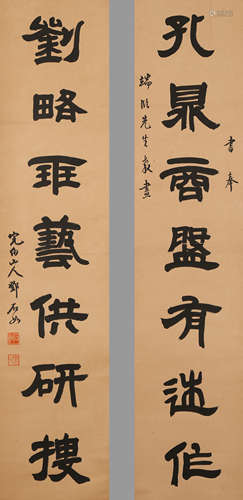 書奉
孔鼎商盤有述作
端臨先生教
劉略班藝供研搜
完白山人鄧石如